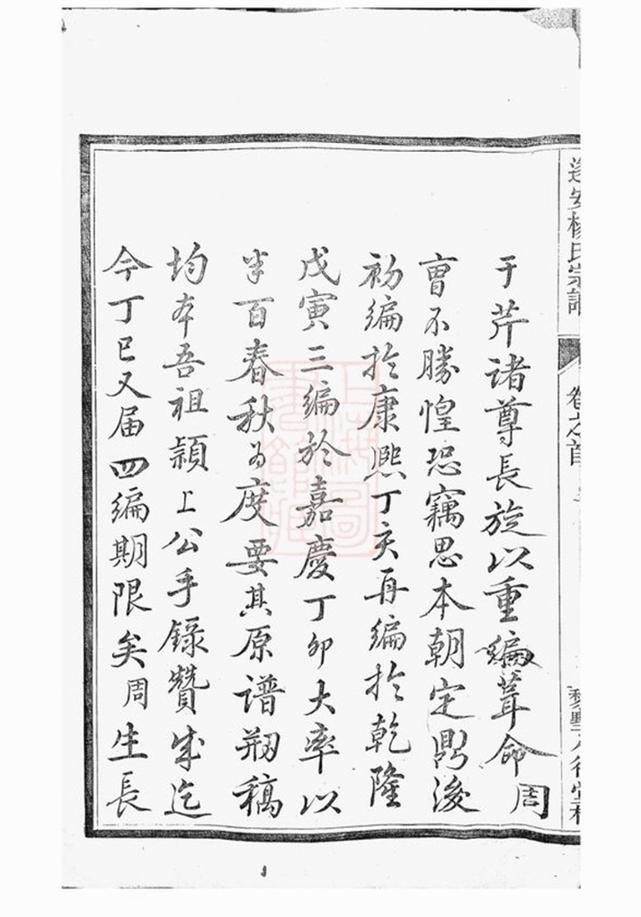 安楊氏宗譜
卷之首
于芹諸尊長旋以重編葺命周
曺不勝惶恐竊思本朝定鼎後
初編於康熙丁亥再編於乾隆
戊寅三編於嘉慶丁卯大率以
半百春秋为度要其原譜剏稿
均本吾祖頴上公手錄贊成迄
今丁巳又届四編期限矣周生長